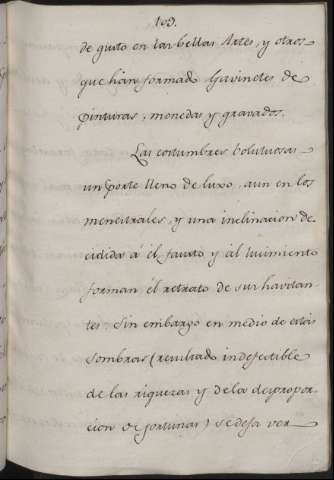 109.
de gusto en las bellas Artes, y otros
que hàn formado Gavinetes de
pinturas, monedas y gravados.
Las costumbres bolutuosas
un porte lleno de luxo, aun en los
menestrales, y una inclinacion de-
cidida à él fausto y àl lucimiento
forman él retrato de sus havitan-
tes. Sin embargo en medio de estas
sombras (resultado indefectible
de las riquezas y de la despropor-
cion de fortunas) se deja ver